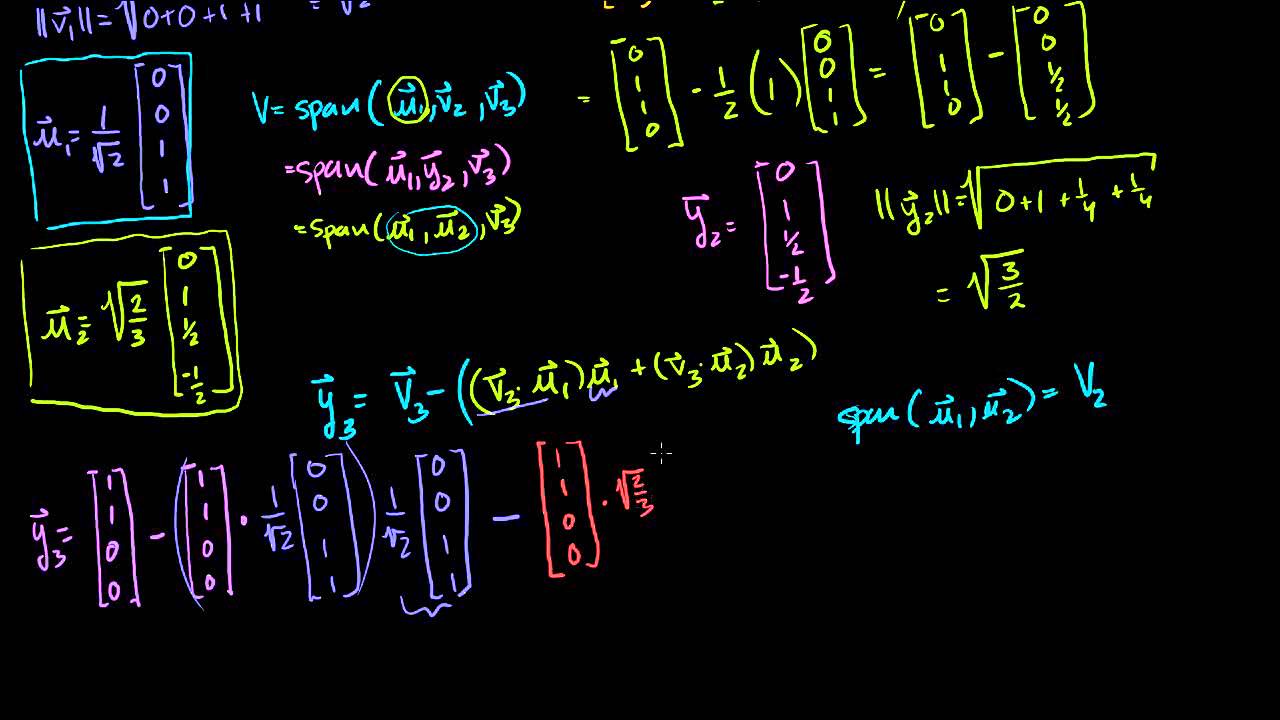 ||v⃗₁|| = √0+0+1+1 = √2
u⃗₁ = 1/√2 [0 0 1 1]
V = span(u⃗₁, v⃗₂, v⃗₃)
= span(u⃗₁, y⃗₂, v⃗₃)
= span(u⃗₁, u⃗₂, v⃗₃)
= [0 1 1 0] - 1/2 (1) [0 0 1 1] = [0 1 1 0] - [0 0 1/2 1/2]
y⃗₂ = [0 1 1/2 -1/2]
||y⃗₂|| = √0+1+1/4+1/4
= √3/2
u⃗₂ = √2/3 [0 1 1/2 -1/2]
y⃗₃ = v⃗₃ - ((v⃗₃·u⃗₁)u⃗₁ + (v⃗₃·u⃗₂)u⃗₂)
span(u⃗₁, u⃗₂) = V₂
y⃗₃ = [1 1 0 0] - ([1 1 0 0] · 1/√2 [0 0 1 1]) 1/√2 [0 0 1 1] - [1 1 0 0] · √2/3